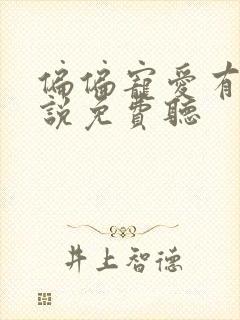 偏偏寵愛有
說免費聽
井上智德